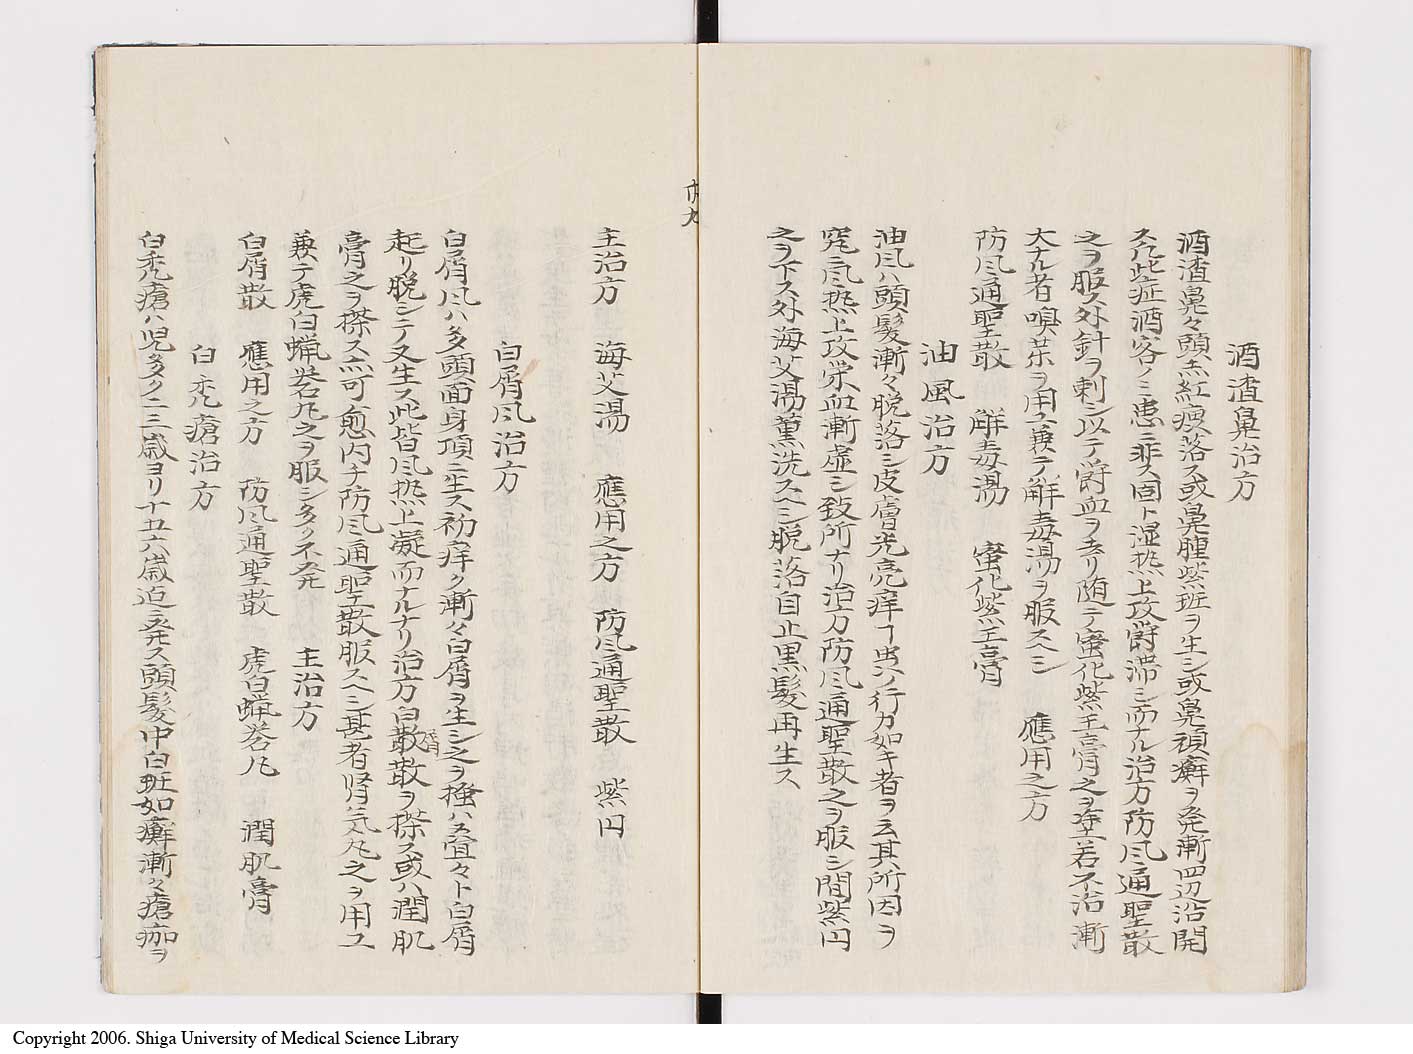 酒渣鼻治方
酒渣鼻々頭赤紅痕落ス或鼻腫紫斑ヲ生シ或鼻䫙癬ヲ発漸四辺沿開
ス凡此症酒客ノミ患ニ非ス固ト湿热上攻欝滞シ而ナル治方防凨通聖散
之ヲ服ス外針ヲ刺シ以テ欝血ヲ去リ随テ蜜化紫王膏之ヲ塗若不治漸
大ナル者嗅茶ヲ用ユ兼テ解毒湯ヲ服スヘシ 應用之方
防凨通聖散 解毒湯 蜜化紫王膏
油風治方
油凨ハ頭髮漸々脱落シ皮膚光亮痒丅虫ノ行カ如キ者ヲ云其所因ヲ
究ニ凨热上攻栄血漸虚シ致所ナリ治方防凨通聖散之ヲ服シ間紫円
之ヲ下ス外海艾湯薫洗スヘシ脱落自止黒髮再生ス
廾九
主治方 海艾湯 應用之方 防凨通聖散 紫円
白屑凨治方
白屑凨ハ多頭面身項ニ生ス初痒ク漸々白屑ヲ生シ之ヲ搔ハ又亶々ト白屑
起リ脱シテ又生ス此皆凨热上凝而ナルナリ治方白散散ヲ擦ス或ハ潤肌
屑
膏之ヲ擦ス亦可愈内チ防凨通聖散服スヘシ甚者腎気丸之ヲ用ユ
兼テ虎白蝋礬丸之ヲ服シ多ク不発 主治方
白屑散 應用之方 防凨通聖散 虎白蝋礬凡 潤肌膏
白禿瘡治方
白禿瘡ハ児多ク二三歳ヨリ十五六歳迄発ス頭髮中白斑如癬漸々瘡痂ヲ
Copyright 2006. Shiga University of Medical Science Library